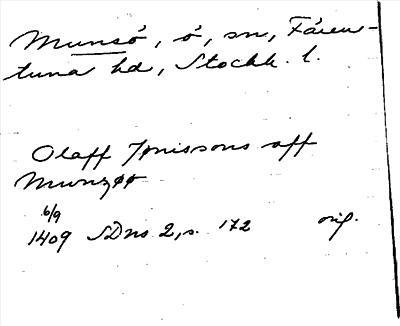 Munsö, ö, sn, Fären-
tuna hd, Stockh. l.
Olaff Jønissons aff
Mwnzøø
6/9
1409 SDns 2, s. 172 orig.